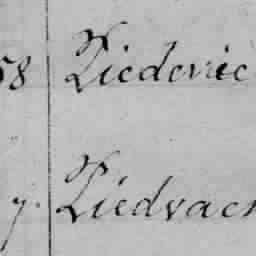 58 Ziedenic
7. Ziedvach